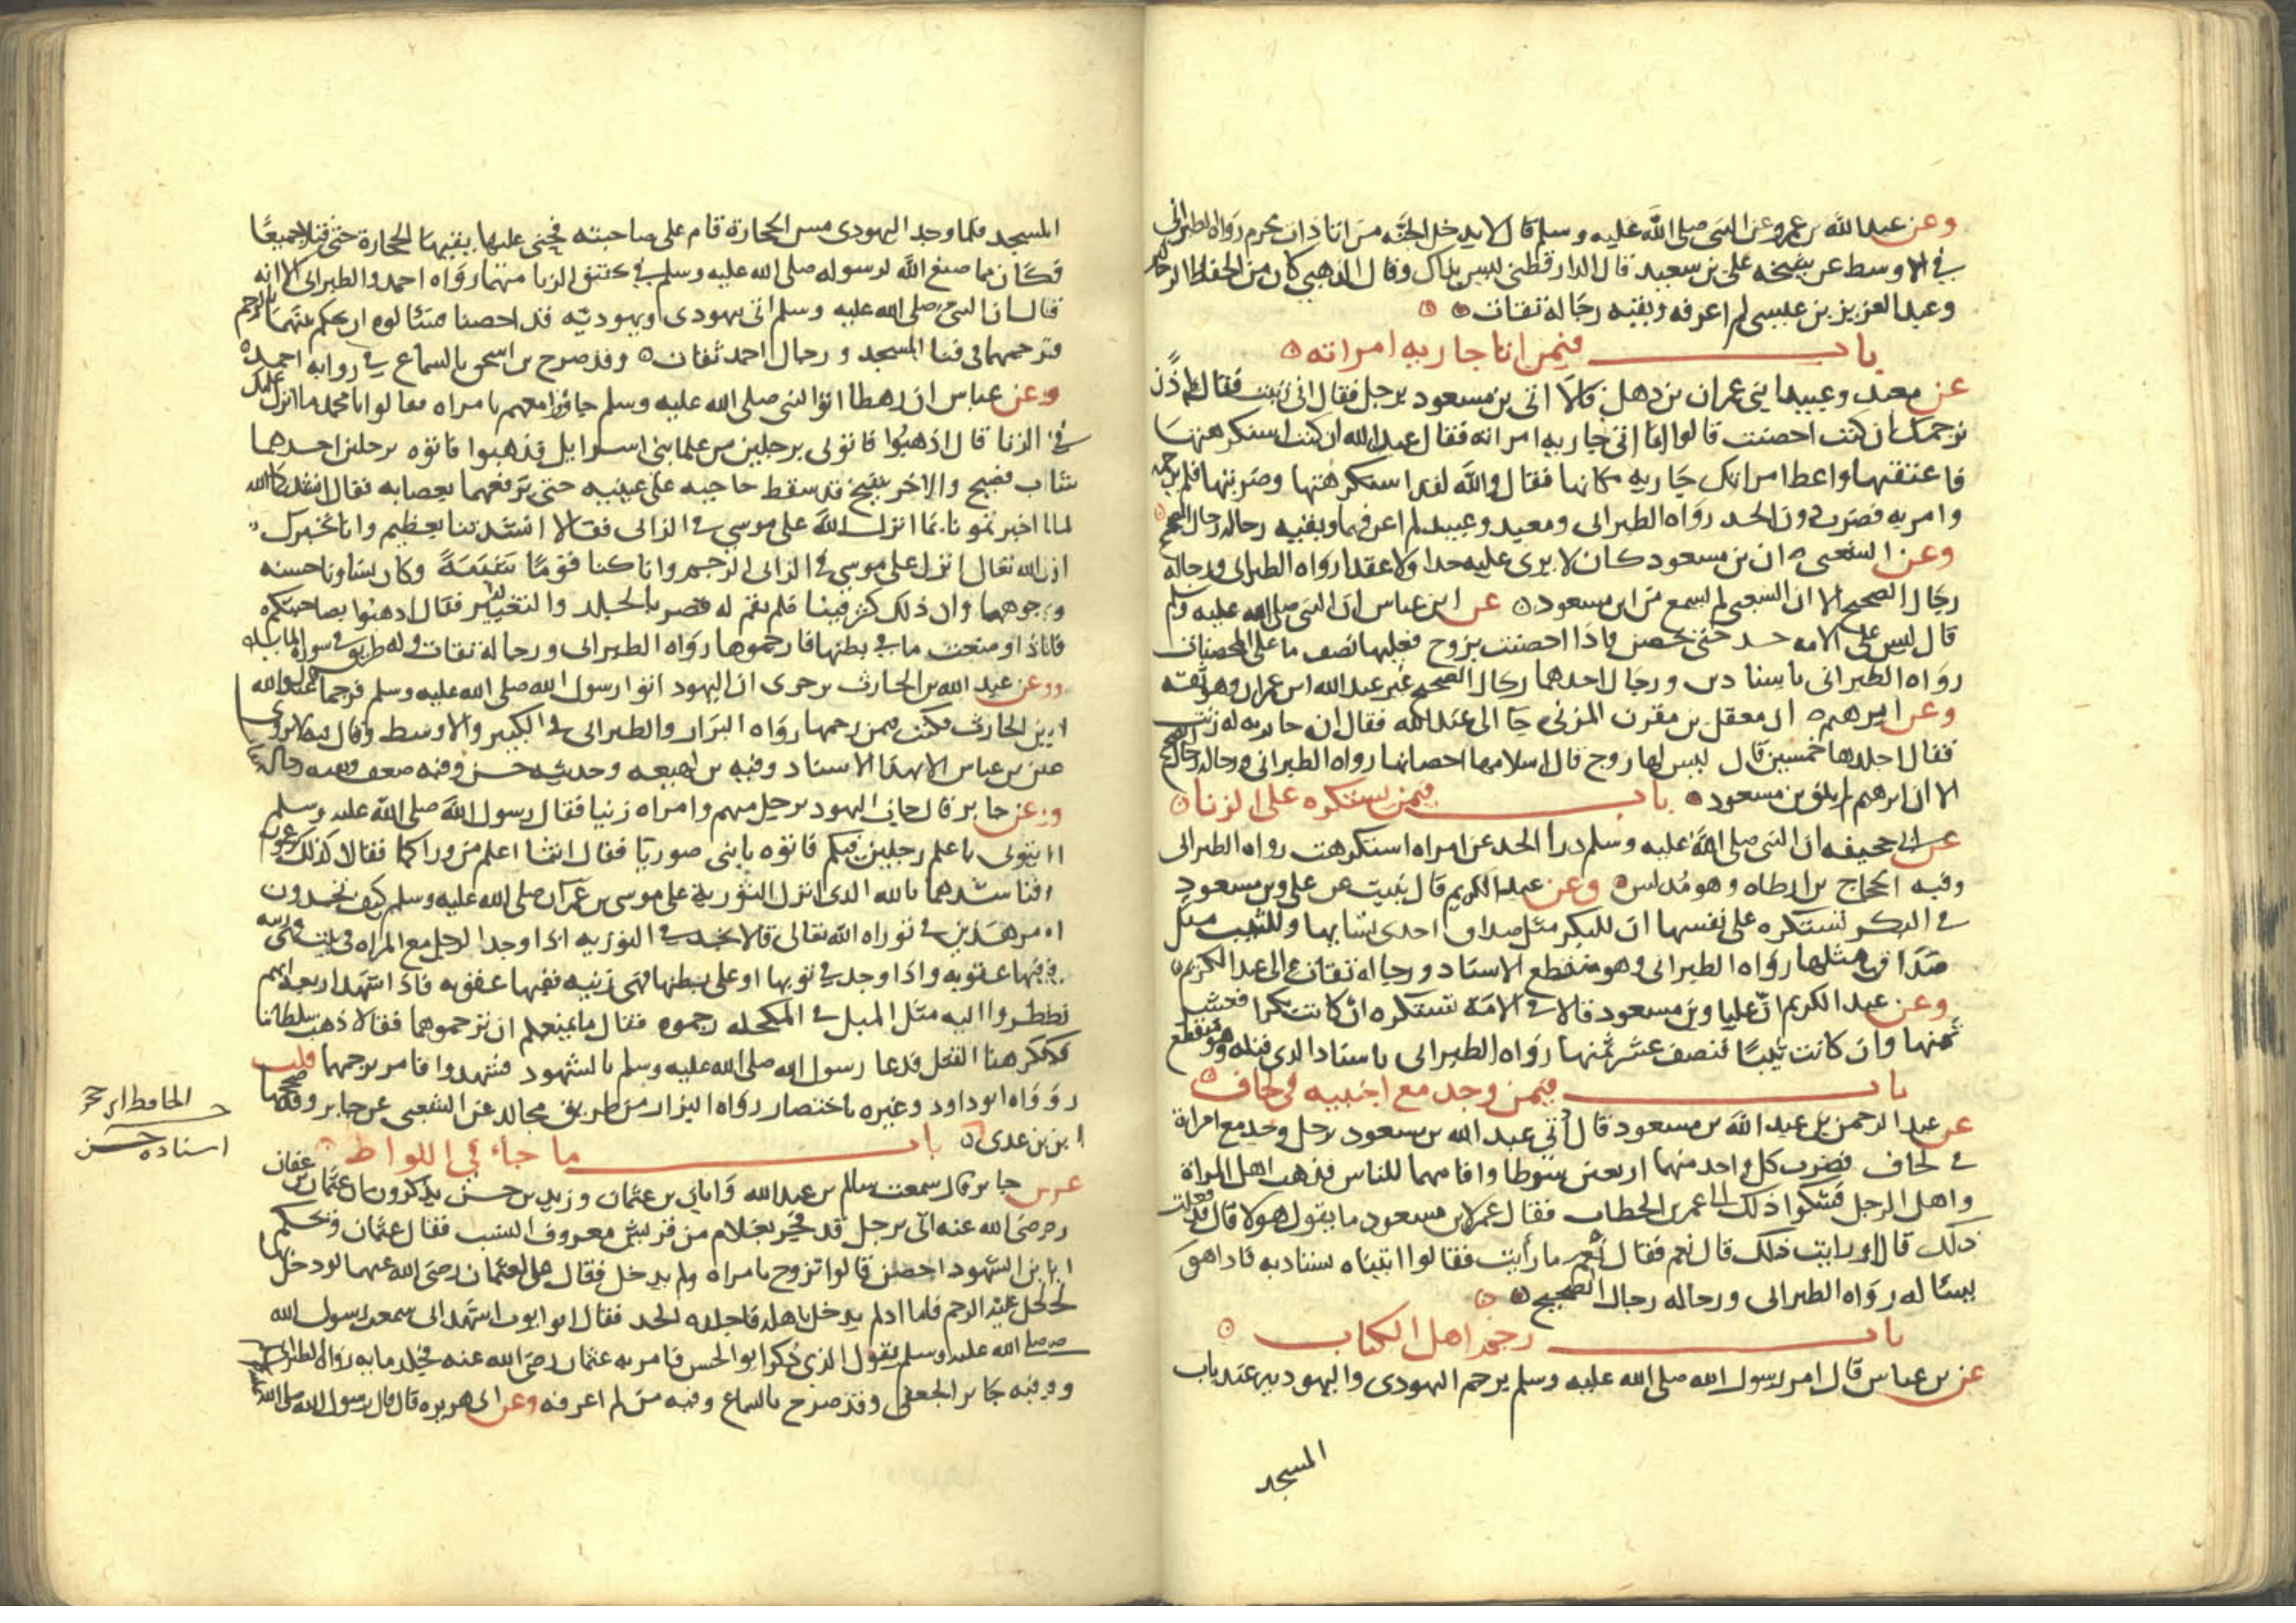 وعن عبدالله بن عمرو عن النبى صلى الله عليه وسلم قال لا يدخل الجنه من اتا ذات محرم رواه الطبرانى
فى الاوسط عن شيخه على بن سعيد قال الدارقطنى ليس بذاك وقال الذهبى كان من الحفاظ الرحالة
وعبد العزيز بن عيسى لم اعرفه وبقيه رجاله ثقات
باب فيمن اتا جاريه امراته
عن معبد وعبيد ابنى عمران بن ذهل قالا اتى بن مسعود برجل فقال انى زنيت فقال اذن
نرجمك ان كنت احصنت قالوا انما اتى جاريه امراته فقال عبد الله ان كنت استكرهتها
فاعتقها واعط امراتك جاريه مكانها فقال والله لقد استكرهتها وضربتها فلم يرجمه
وامر به فضرب دون الحد رواه الطبرانى ومعبد وعبيد لم اعرفهما وبقيه رجاله رجال الصحيح
وعن الشعبى ان بن مسعود كان لا يرى عليه حدا ولا عقرا رواه الطبرانى ورجاله
رجال الصحيح الا ان الشعبى لم يسمع من ابن مسعود عن ابن عباس ان النبى صلى الله عليه وسلم
قال ليس على الامه حد حتى تحصن فاذا احصنت بزوج فعليها نصف ما على المحصنات
رواه الطبرانى باسنادين ورجال احدهما رجال الصحيح غير عبد الله ابن عمران وهو ثقه
وعن ابرهيم ان معقل بن مقرن المزنى جا الى عبد الله فقال ان جاريه له زنت
فقال اجلدها خمسين قال ليس لها زوج قال اسلامها احصانها رواه الطبرانى ورجاله رجال الصحيح
الا ان ابرهيم لم يلق بن مسعود باب فيمن يستكره على الزنا
عن ابى جحيفه ان النبى صلى الله عليه وسلم درأ الحد عن امراه استكرهت رواه الطبرانى
وفيه الحجاج بن ارطاه وهو مدلس وعن عبد الكريم قال نبيت عن على وبن مسعود
فى البكر تستكره على نفسها ان للبكر مثل صداق احدى نسايها وللثيب مثل
صداق مثلها رواه الطبرانى وهو منقطع الاسناد ورجاله ثقات الى عبد الكريم
وعن عبد الكريم ان عليا وبن مسعود قالا فى الامة تستكره ان كانت بكرا فعشر
ثمنها وان كانت ثيبا فنصف عشر ثمنها رواه الطبرانى باسناد الذى قبله وهو منقطع
باب فيمن وجد مع اجنبيه فى لحاف
عن عبد الرحمن بن عبد الله بن مسعود قال أتي عبد الله بن مسعود برجل وجد مع امراة
فى لحاف فضرب كل واحد منهما اربعين سوطا واقامهما للناس فذهب اهل المراة
واهل الرجل فشكوا ذلك الى عمر بن الخطاب فقال عمر لابن مسعود ما يقول هولا قال قد فعلت
ذلك قال او رايت ذلك قال نعم فقال نعم ما رأيت فقالوا اتيناه نستاديه فاذا هو
يساله رواه الطبرانى ورجاله رجال الصحيح
باب رجم اهل الكتاب
عن بن عباس قال امر رسول الله صلى الله عليه وسلم برجم اليهودى واليهوديه عند باب
المسجد
المسجد فلما وجد اليهودى مس الحجارة قام على صاحبته فجنى عليها يقيها الحجارة حتى قتلا جميعا
فكان مما صنع الله لرسوله صلى الله عليه وسلم فى تحقق الزنا منهما رواه احمد والطبرانى الا انه
قال ان النبى صلى الله عليه وسلم اتى بيهودى ويهوديه قد احصنا فسالوه ان يحكم بينهما بالرجم
فرجمهما فى فنا المسجد ورجال احمد ثقات وقد صرح بن اسحق بالسماع فى روايه احمد
وعن عباس ان رهطا اتوا النبى صلى الله عليه وسلم جاؤا معهم بامراه فقالوا يا محمد ما انزل عليك
فى الزنا قال اذهبوا فاتونى برجلين من علما بنى اسرايل فذهبوا فاتوه برجلين احدهما
شاب فصيح والاخر شيخ قد سقط حاجبه على عينيه حتى يرفعهما بعصابه فقال انشدكما الله
لما اخبرتمونا بما انزل الله على موسى فى الزانى فقالا انشدتنا بعظيم وانا نخبرك
ان الله تعالى انزل على موسى فى الزانى الرجم وانا كنا قوما شببة وكان نساونا حسنه
وجوهها وان ذلك كثر فينا فلم نقم له فصرنا نجلد والتعيير فقال اذهبوا بصاحبتكم
فاذا وضعت ما فى بطنها فارجموها رواه الطبرانى ورجاله ثقات وله طريق فى سورة المايده
وعن عبد الله بن الحارث بن جزى ان اليهود اتوا رسول الله صلى الله عليه وسلم فرجمها عبد الله
بن الحارث فكنت فيمن رجمها رواه البزار والطبرانى فى الكبير والاوسط وقال فيه لا يروى
عن بن عباس الا بهذا الاسناد وفيه بن لهيعه وحديثه حسن وفيه ضعف وبقيه رجاله ثقات
وعن جابر قال جات اليهود برجل منهم وامراه زنيا فقال رسول الله صلى الله عليه وسلم
ايتونى باعلم رجلين فيكم فاتوه بابنى صوريا فقال انتما اعلم من وراكما فقالا كذلك يزعمون
فناشدهما بالله الذى انزل التورية على موسى بن عمران صلى الله عليه وسلم كيف تجدون
امر هذين فى توراه الله تعالى قالا نجد فى التوريه اذا وجد الرجل مع المراه فى بيت فهى ريبه
فيها عقوبه واذا وجد فى ثوبها او على بطنها فهى زنيه فيها عقوبه فاذا شهد اربعه انهم
نظروا اليه مثل الميل فى المكحله رجموه فقال ما يمنعكم ان ترجموهما فقالا ذهب سلطاننا
فكرهنا القتل فدعا رسول الله صلى الله عليه وسلم بالشهود فشهدوا فامر برجمها قلت
رواه ابو داود وغيره باختصار رواه البزار من طريق مجالد عن الشعبى عن جابر وقد صححها
ابن عدى باب ما جاء في اللواط
عن جابر قال سمعت سالم بن عبد الله وابان بن عثمان وزيد بن حسن يذكرون ان عثمان بن عفان
رضى الله عنه اتى برجل قد فجر بغلام من قريش معروف النسب فقال عثمان ويحكم
اين الشهود احصن قالوا تزوج بامراه ولم يدخل فقال على لعثمان رضى الله عنهما لو دخل
لحل عليه الرجم فاما اذ لم يدخل باهله فاجلده الحد فقال ابو ايوب اشهد انى سمعت رسول الله
صلى الله عليه وسلم يقول الذى ذكر ابو الحسن فامر به عثمان رضى الله عنه فجلد مايه رواه الطبرانى
وفيه جابر الجعفى وقد صرح بالسماع وفيه من لم اعرفه وعن ابى هريره قال قال رسول الله صلى الله عليه
الحافظ ابن حجر
اسناده حسن